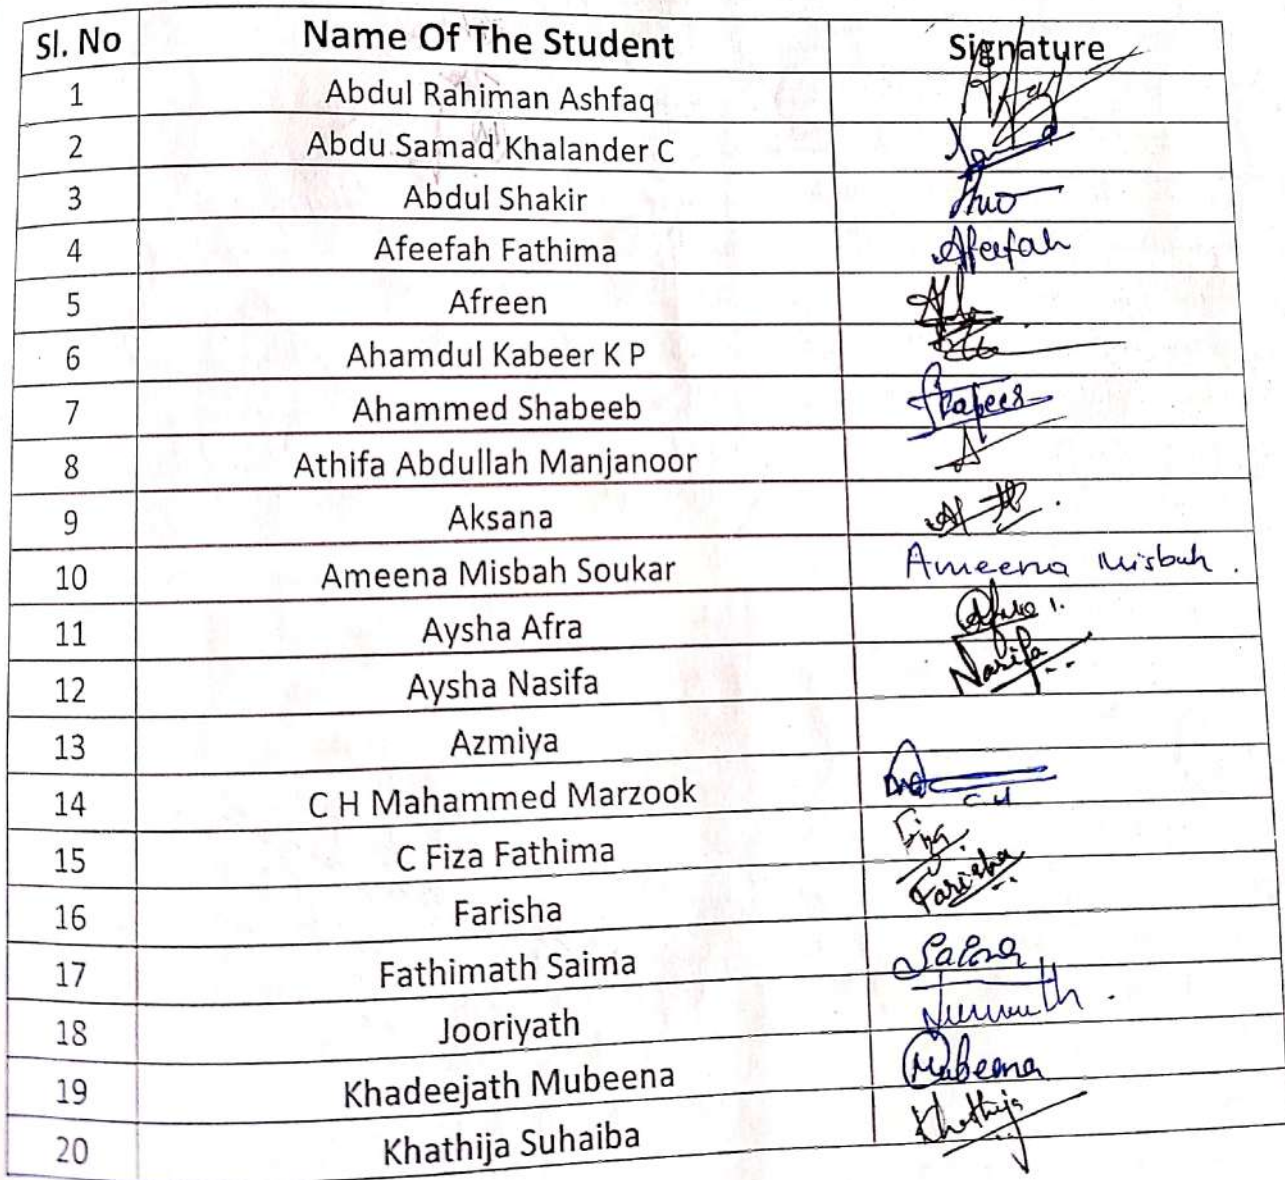 Sl. No Name Of The Student Signature
1 Abdul Rahiman Ashfaq
2 Abdu Samad Khalander C
3 Abdul Shakir
4 Afeefah Fathima Afeefah
5 Afreen
6 Ahamdul Kabeer K P
7 Ahammed Shabeeb
8 Athifa Abdullah Manjanoor
9 Aksana
10 Ameena Misbah Soukar Ameena Misbah.
11 Aysha Afra
12 Aysha Nasifa Nasifa
13 Azmiya
14 C H Mahammed Marzook C H
15 C Fiza Fathima Fiza
16 Farisha Farisha
17 Fathimath Saima
18 Jooriyath
19 Khadeejath Mubeena Mubeena
20 Khathija Suhaiba Khathija